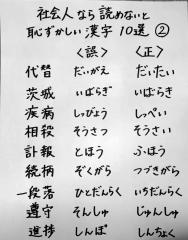 社会人なら読めないと
恥ずかしい漢字10選②
<誤> <正>
代替 だいがえ だいたい
茨城 いばらぎ いばらき
疾病 しつびょう しっぺい
相殺 そうさつ そうさい
訃報 とほう ふほう
続柄 ぞくがら つづきがら
一段落 ひとだんらく いちだんらく
遵守 そんしゅ じゅんしゅ
進捗 しんぽ しんちょく